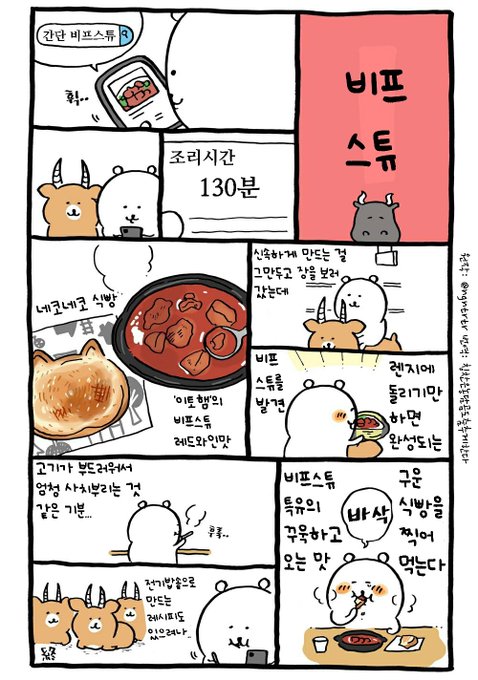 비프
스튜
간단 비프스튜
흠..
조리시간
130분
신속하게 만드는 걸
그만두고 장을 보러
갔는데
네코네코 식빵
'이토햄'의
비프스튜
레드와인맛
비프
스튜를
발견
렌지에
돌리기만
하면
완성되는
고기가 부드러워서
엄청 사치부리는 것
같은 기분...
후룩..
비프스튜
특유의
꾸욱하고
오는 맛
바삭
구운
식빵을
찍어
먹는다
전기밥솥으로
만드는
레시피도
있으려나..